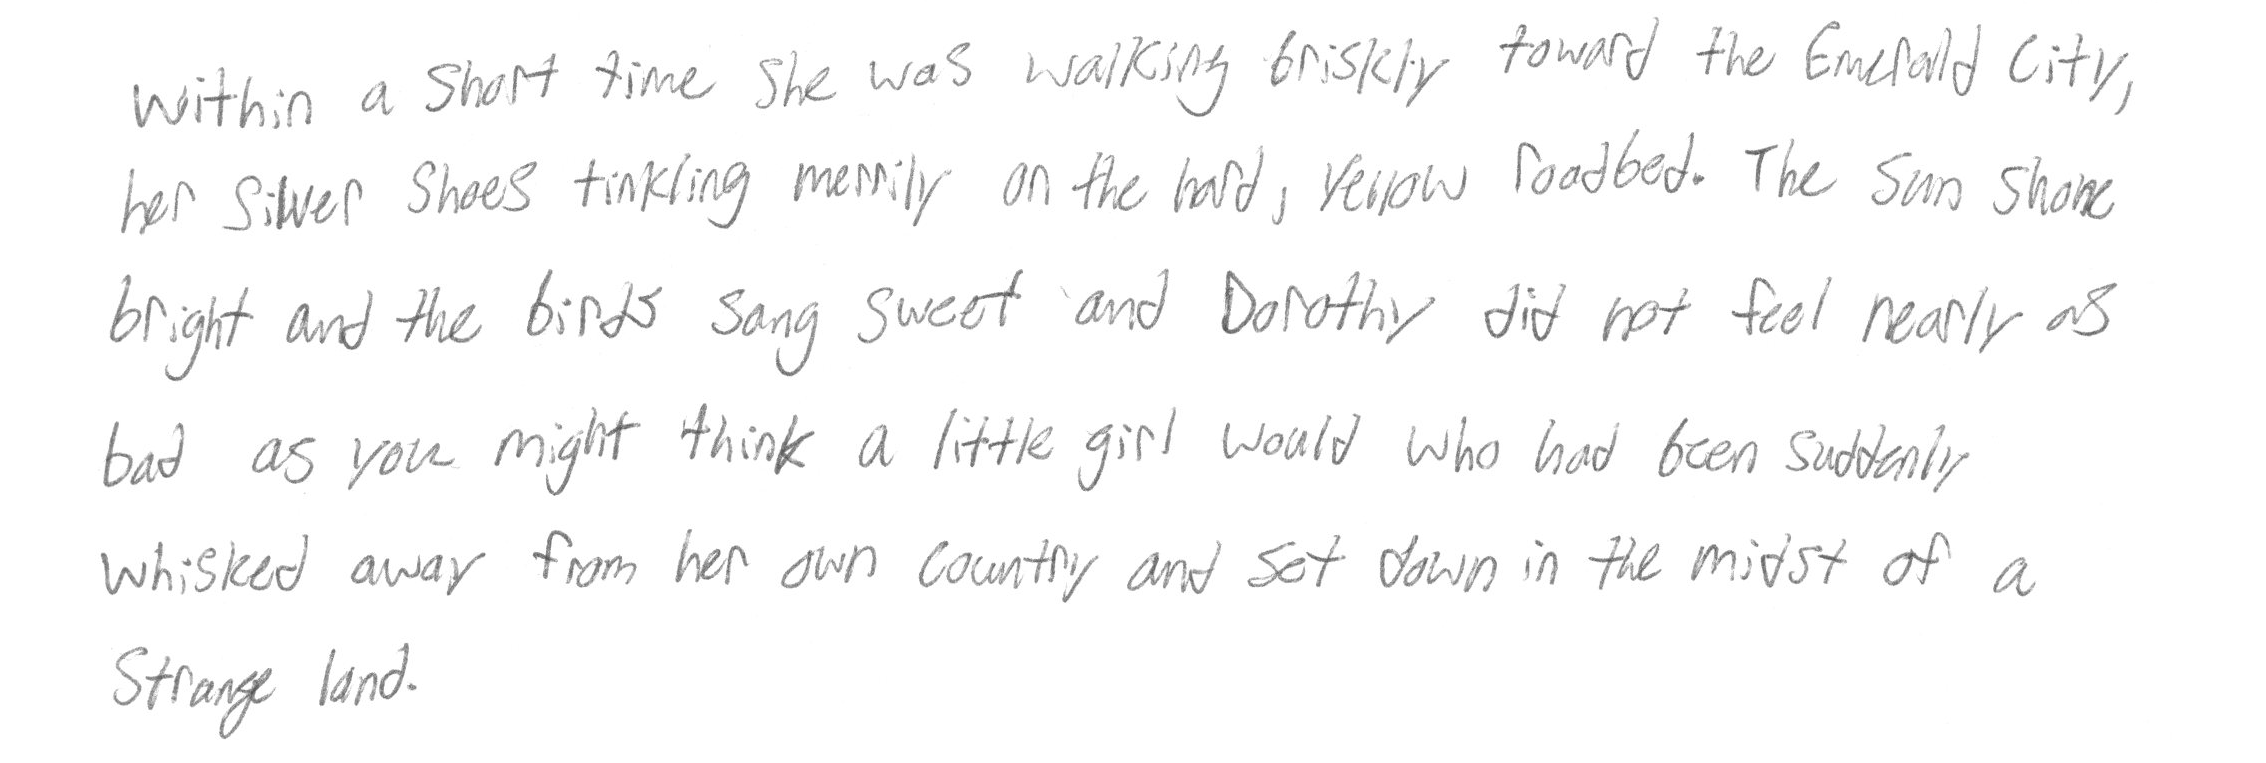 Within a short time she was walking briskly toward the Emerald City,
her Silver Shoes tinkling merrily on the hard, yellow roadbed. The sun shone
bright and the birds sang sweet and Dorothy did not feel nearly as
bad as you might think a little girl would who had been suddenly
whisked away from her own country and set down in the midst of a
strange land.